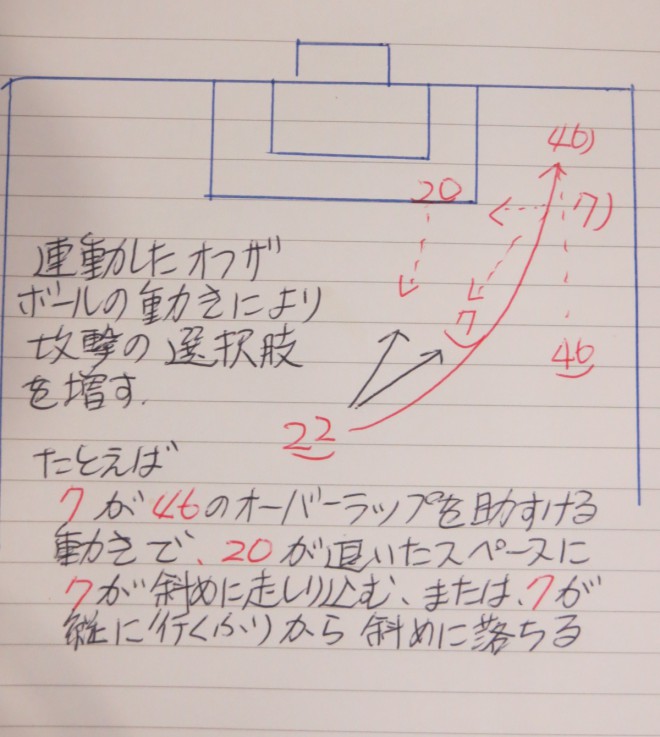 46)
20
7)
連動したオフザ
ボールの動きにより
攻撃の選択肢
を増す.
7
46
22
たとえば
7が46のオーバーラップを助すける
動きで、20が直いたスペースに
7が斜めに走しり込む、または、7が
縦に行くふりから斜めに落ちる